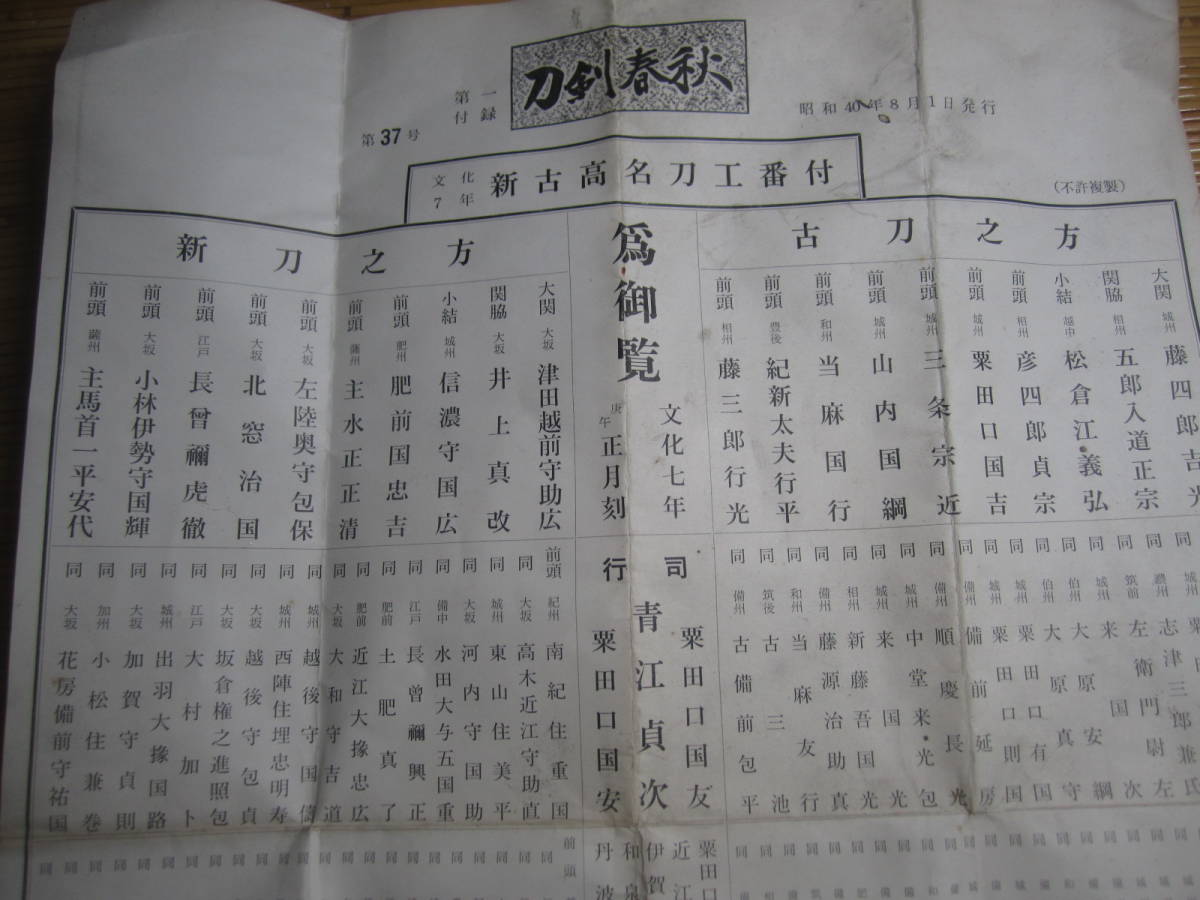 刀剣春秋
第一付録
第37号
昭和40年8月1日発行
文化7年 新古高名刀工番付
(不許複製)
古刀之方
大関 城州 藤四郎吉光
関脇 相州 五郎入道正宗
小結 越中 松倉江義弘
前頭 相州 彦四郎貞宗
前頭 城州 粟田口国吉
前頭 城州 三条宗近
前頭 城州 山内国綱
前頭 和州 当麻国行
前頭 豊後 紀新太夫行平
前頭 相州 藤三郎行光
同 濃州 志津三郎兼氏
同 筑前 左衛門尉左
同 城州 来国次
同 伯州 大原安綱
同 伯州 大原真守
同 城州 粟田口有国
同 城州 粟田口則国
同 備州 備前延房
同 備州 順慶長光
同 城州 中堂来光包
同 城州 来国光
同 相州 新藤吾国光
同 備州 藤源治助真
同 和州 当麻友行
同 筑後 古三池
同 備州 古備前包平
為御覧
文化七年
庚午 正月刻
行司
粟田口国友
青江貞次
粟田口国安
粟田口
近江
伊賀
和泉
丹波
新刀之方
大関 大坂 津田越前守助広
関脇 大坂 井上真改
小結 城州 信濃守国広
前頭 肥州 肥前国忠吉
前頭 薩州 主水正正清
前頭 大坂 左陸奥守包保
前頭 大坂 北窓治国
前頭 江戸 長曾禰虎徹
前頭 大坂 小林伊勢守国輝
前頭 薩州 主馬首一平安代
前頭 紀州 南紀住重国
同 大坂 高木近江守助直
同 城州 東山住美平
同 大坂 河内守国助
同 備中 水田大与五国重
同 江戸 長曾禰興正
同 肥前 土肥真了
同 肥前 近江大掾忠広
同 大坂 大和守吉道
同 城州 越後守国儔
同 城州 西陣住埋忠明寿
同 大坂 越後守包貞
同 大坂 坂倉権之進照包
同 江戸 大村加卜
同 城州 出羽大掾国路
同 大坂 加賀守貞則
同 加州 小松住兼巻
同 大坂 花房備前守祐国